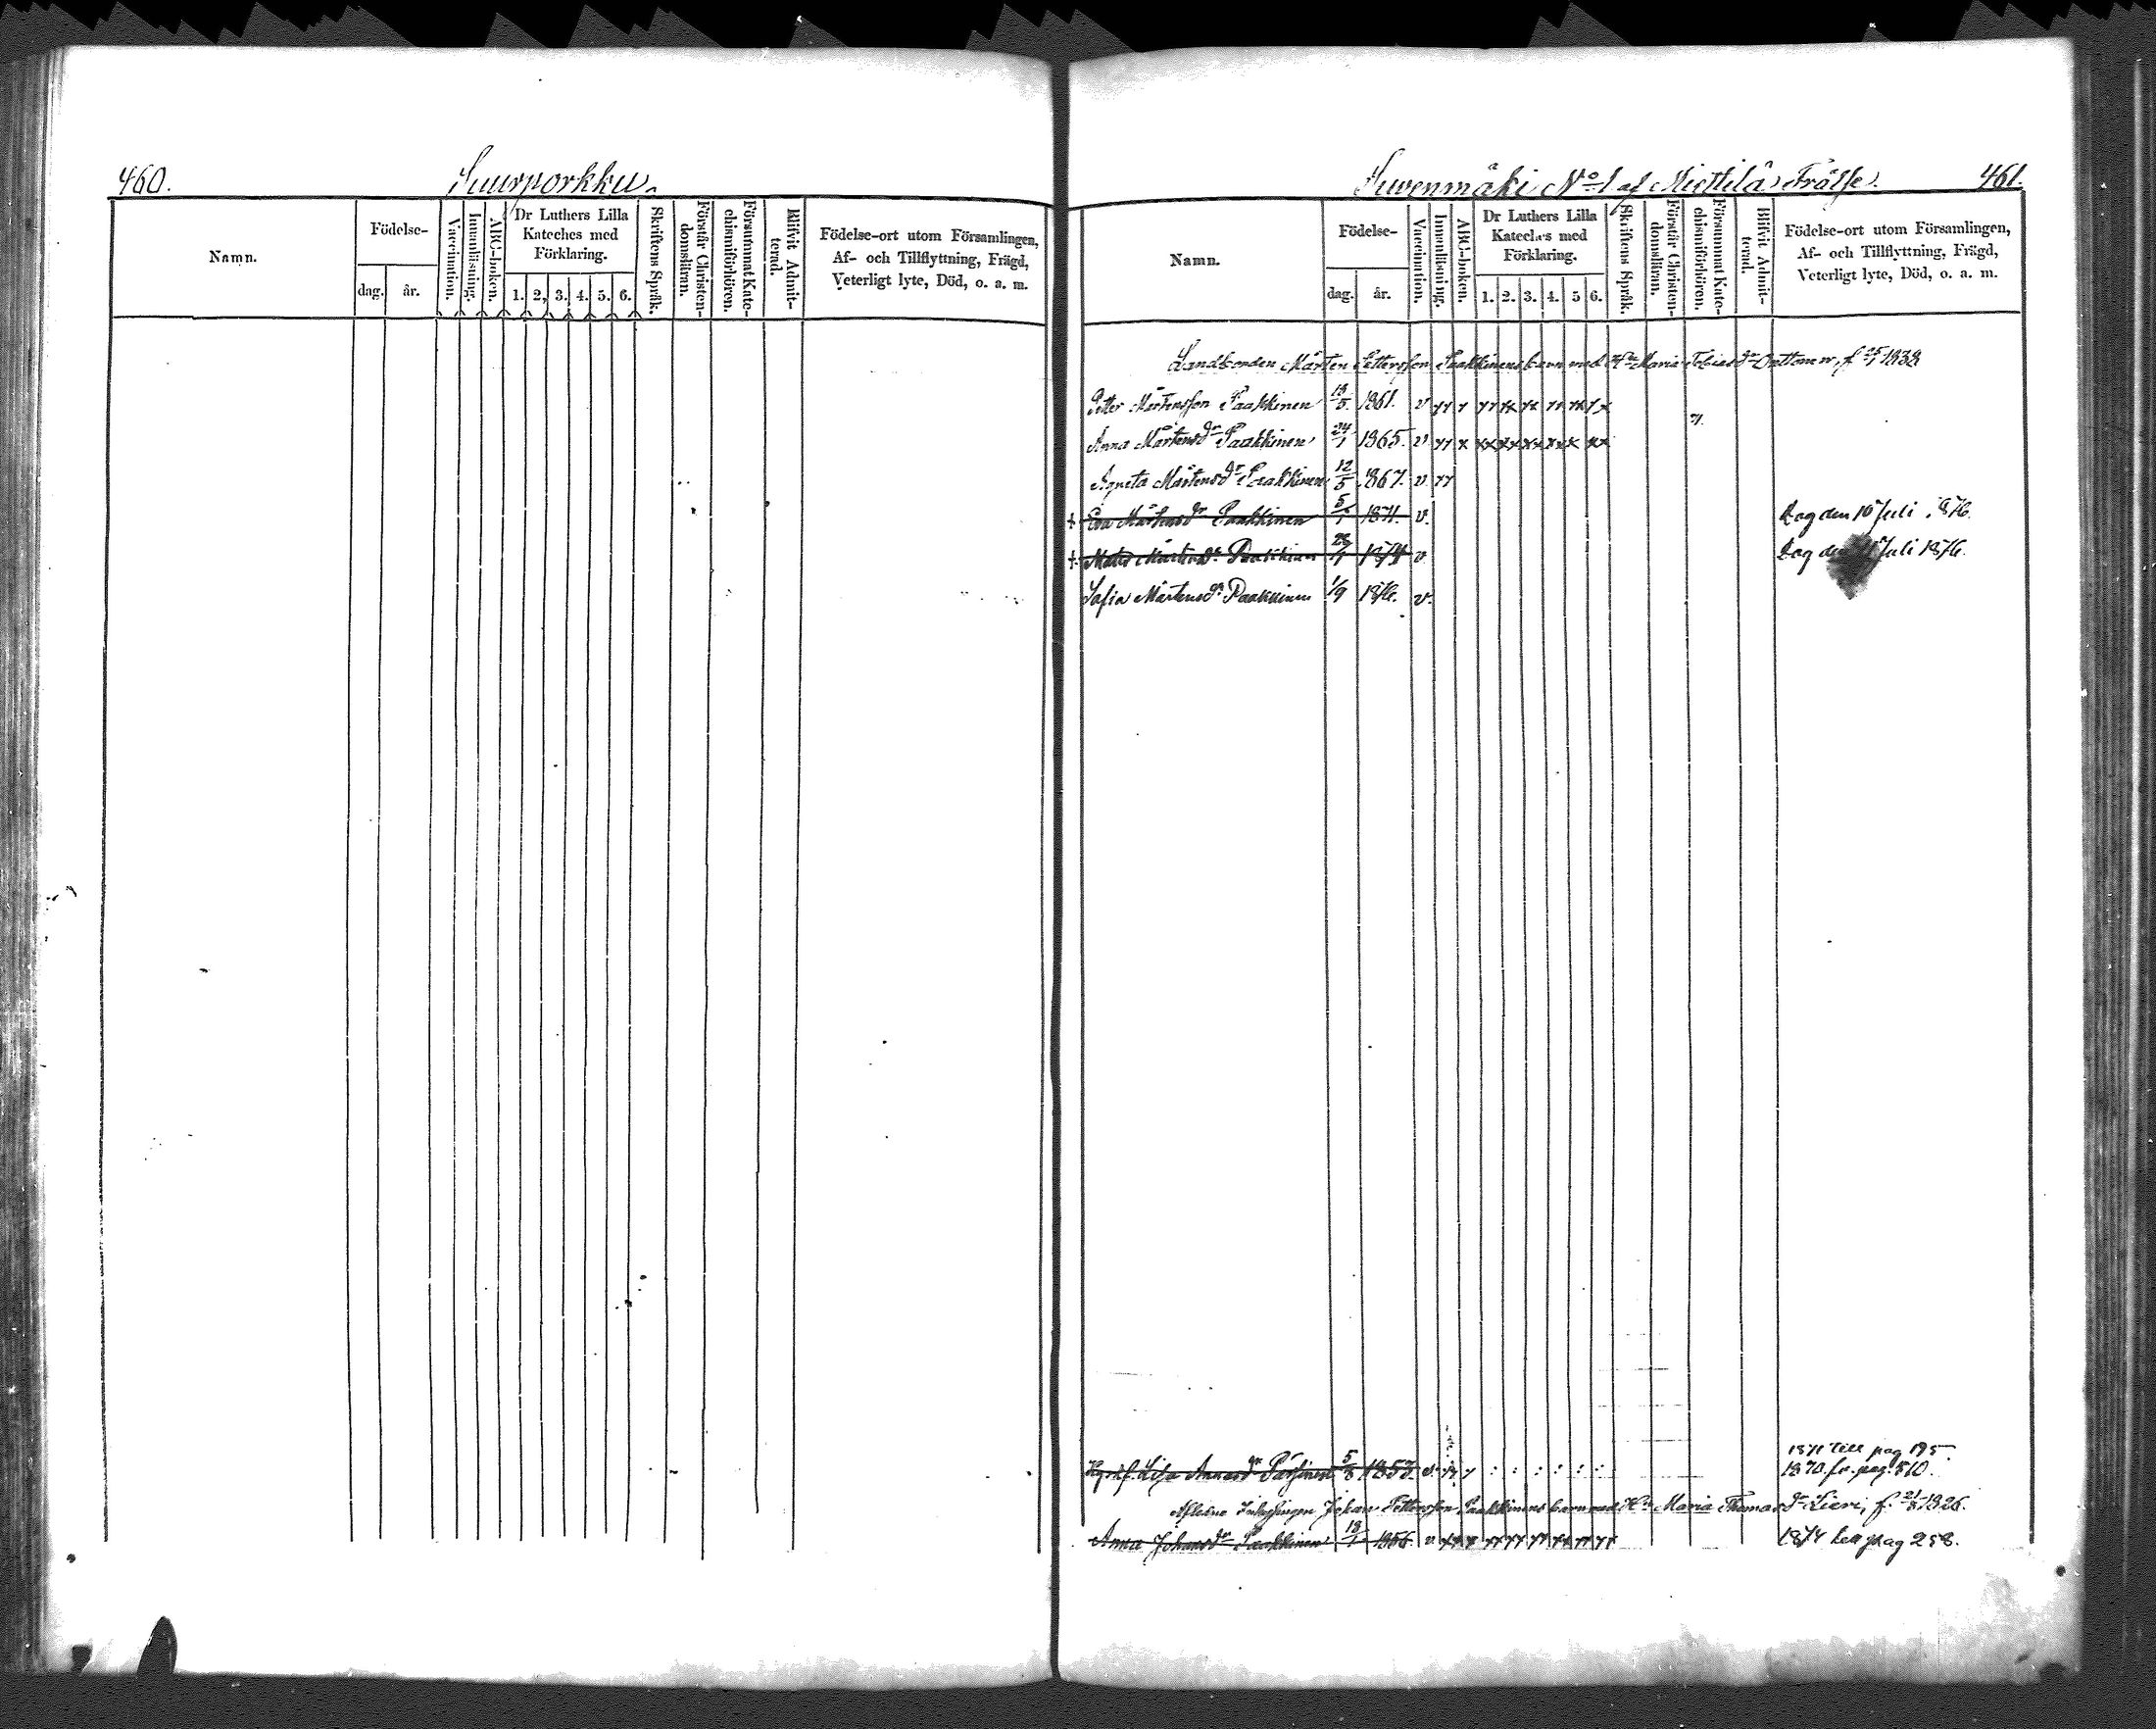 460.
Suurporkku.
Namn.
Födelse-
dag. år.
Vaccination.
Innanläsning.
ABC-boken.
Dr Luthers Lilla
Kateches med
Förklaring.
1. 2. 3. 4. 5. 6.
Skriftens Språk.
Förstår Christen-
domsläran.
Försummat Kate-
chismiförhören.
Blifvit Admit-
terad.
Födelse-ort utom Församlingen,
Af- och Tillflyttning, Frägd,
Veterligt lyte, Död, o. a. m.
Suvenmäki No 1 af Miettilä Frälse.
461.
Namn.
Födelse-
dag. år.
Vaccination.
Innanläsning.
ABC-boken.
Dr Luthers Lilla
Kateches med
Förklaring.
1. 2. 3. 4. 5 6.
Skriftens Språk.
Förstår Christen-
domsläran.
Försummat Kate-
chismiförhören.
Blifvit Admit-
terad.
Födelse-ort utom Församlingen,
Af- och Tillflyttning, Frägd,
Veterligt lyte, Död, o. a. m.
Landbonden Mårten Pettersson Paakkinens barn med Hu Maria Tobiasdr 1838
Petter Mårtensson Paakkinen 13/5. 1861. v
Anna Mårtensdr Paakkinen 24/1 1865. v
Agneta Mårtensdr Paakkinen 12/5 1867. v
+ Eva Mårtensdr Paakkinen 5/1 1871. v. Dog den 10 Juli 1876.
+ Paakkinen 1874 v Dog den Juli 1876.
Sofia Mårtensdr Paakkinen 1/9 1876. v.
1871 till pag 195
Lisa Annasdr Pärssinen 5/8 1853. v. 1870 fr. pag. 810.
Aflidne Inhysingen Johan Pettersson Paakkinens barn med Hu Maria Thomasdr Lieri, f. 21/8 1826.
Anna Johansdr Paakkinen 13/1 1856 v 1874 till pag 258.